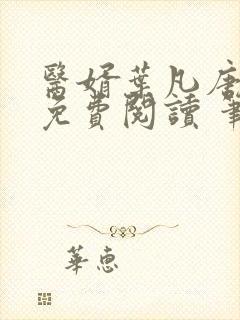 醫婿葉凡唐
免費閱讀 筆
華惠